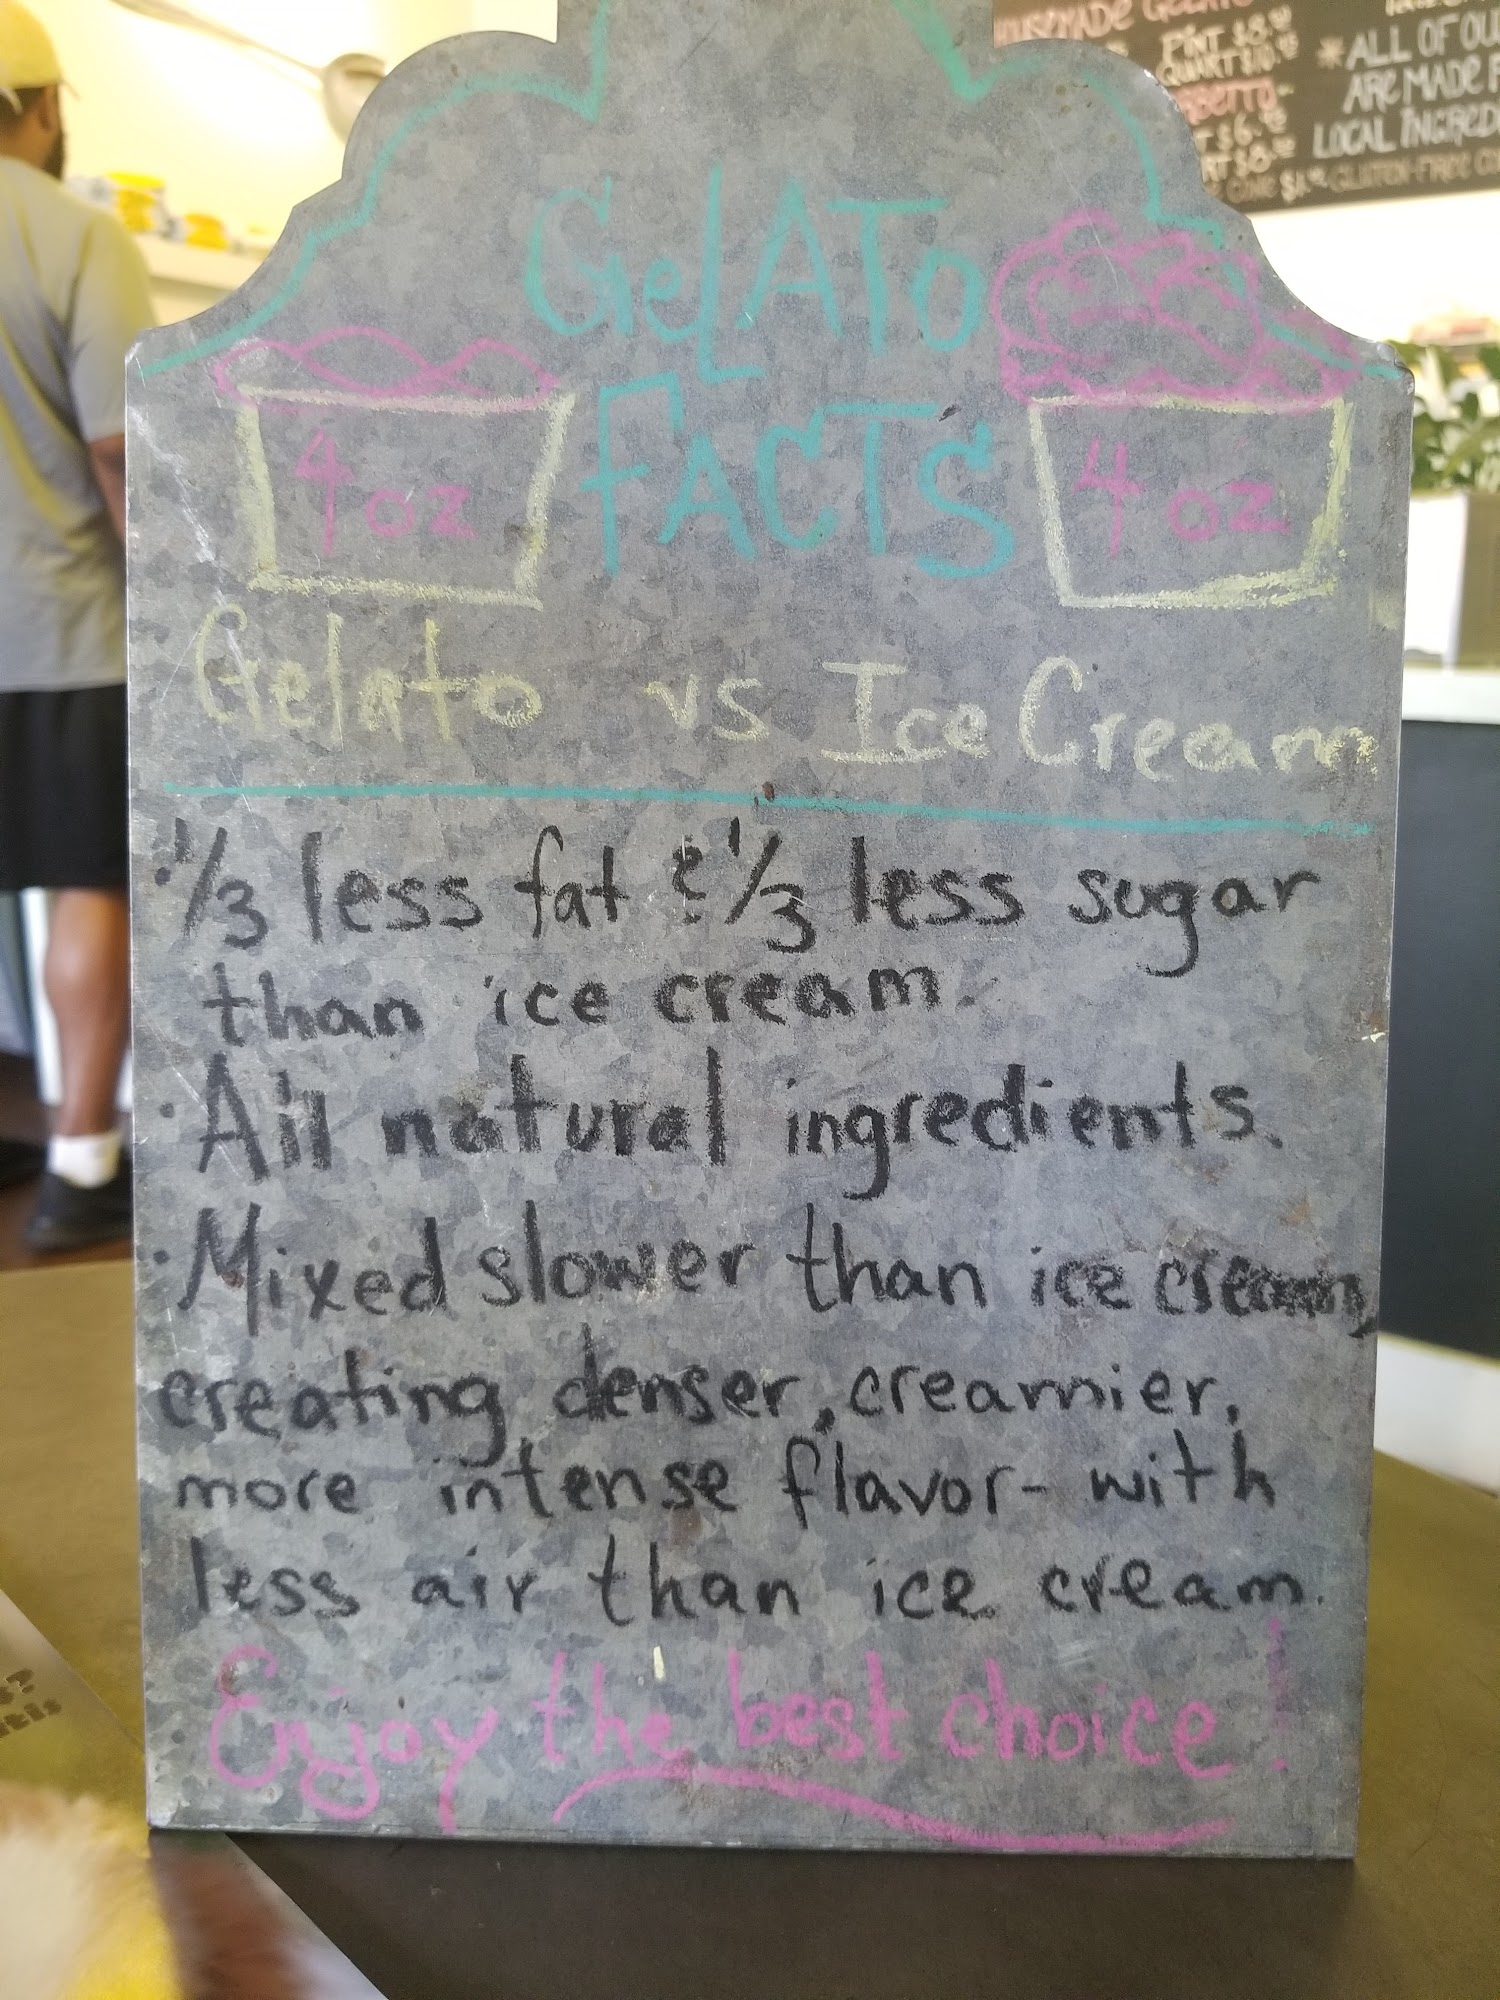 HOUSEMADE GELATO
PINT $8.
QUART $10.
*ALL OF OU
ARE MADE F
LOCAL INGRED
GLUTEN-FREE CO
GeLATo
FACTS
4 oz
4 oz
Gelato vs Ice Cream
·1/3 less fat & 1/3 less sugar
than ice cream.
·All natural ingredients.
·Mixed slower than ice cream,
creating denser, creamier,
more intense flavor- with
less air than ice cream.
Enjoy the best choice!